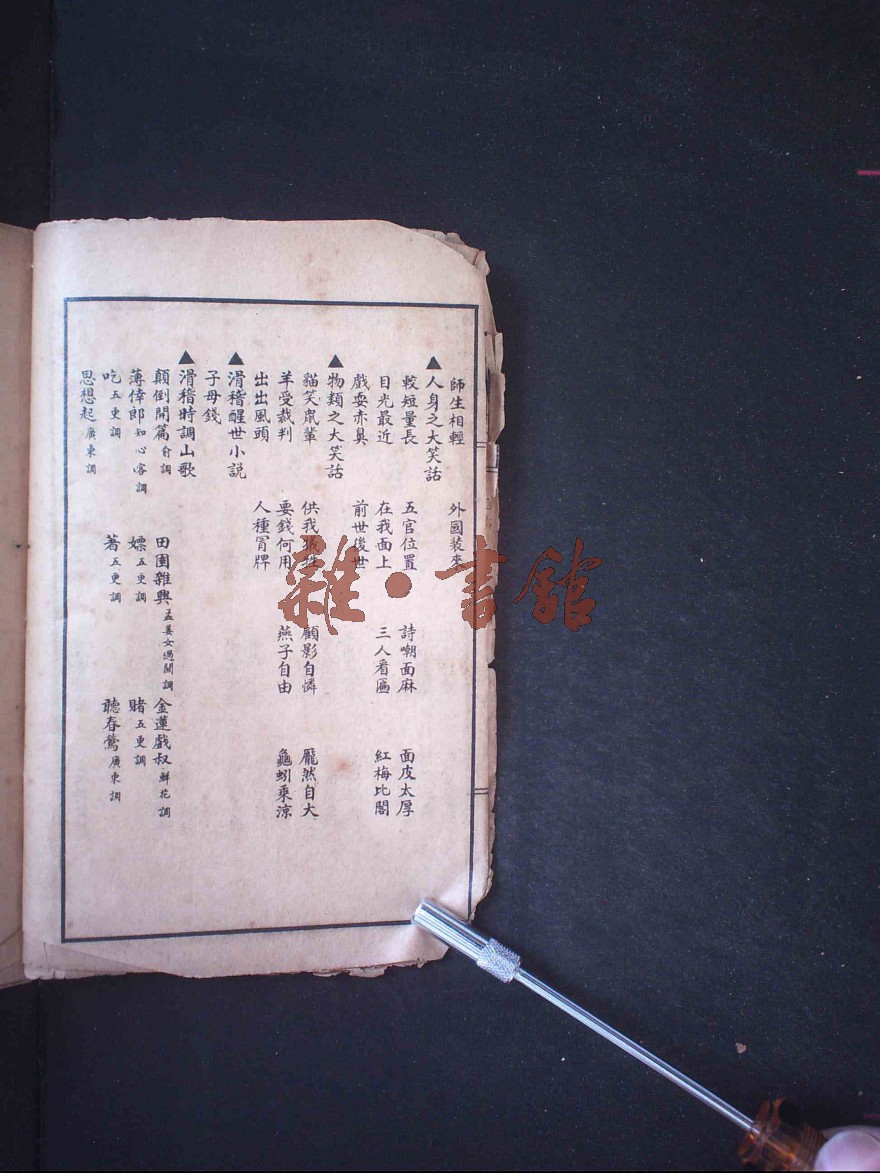 師生相輕 外國裝來
▲人身之大笑話
較短量長 五官位置 詩嘲面麻 面皮太厚
目光最近 在我面上 三人看匾 紅梅比閣
戲耍赤臭 前世後世
▲物類之大笑話
貓笑鼠輩 供我犧牲 顧影自憐 龐然自大
羊受裁判 要錢何用 燕子自由 龜蚓乘涼
出出風頭 人種冒牌
▲滑稽醒世小說
子母錢
▲滑稽時調山歌
顛倒開篇俞調 田園雜興孟姜女過關調 金蓮戲叔鮮花調
薄倖郎如心客調 嫖五更調 賭五更調
吃五更調 著五更調 聽春鶯廣東調
思想起廣東調
雜·書館